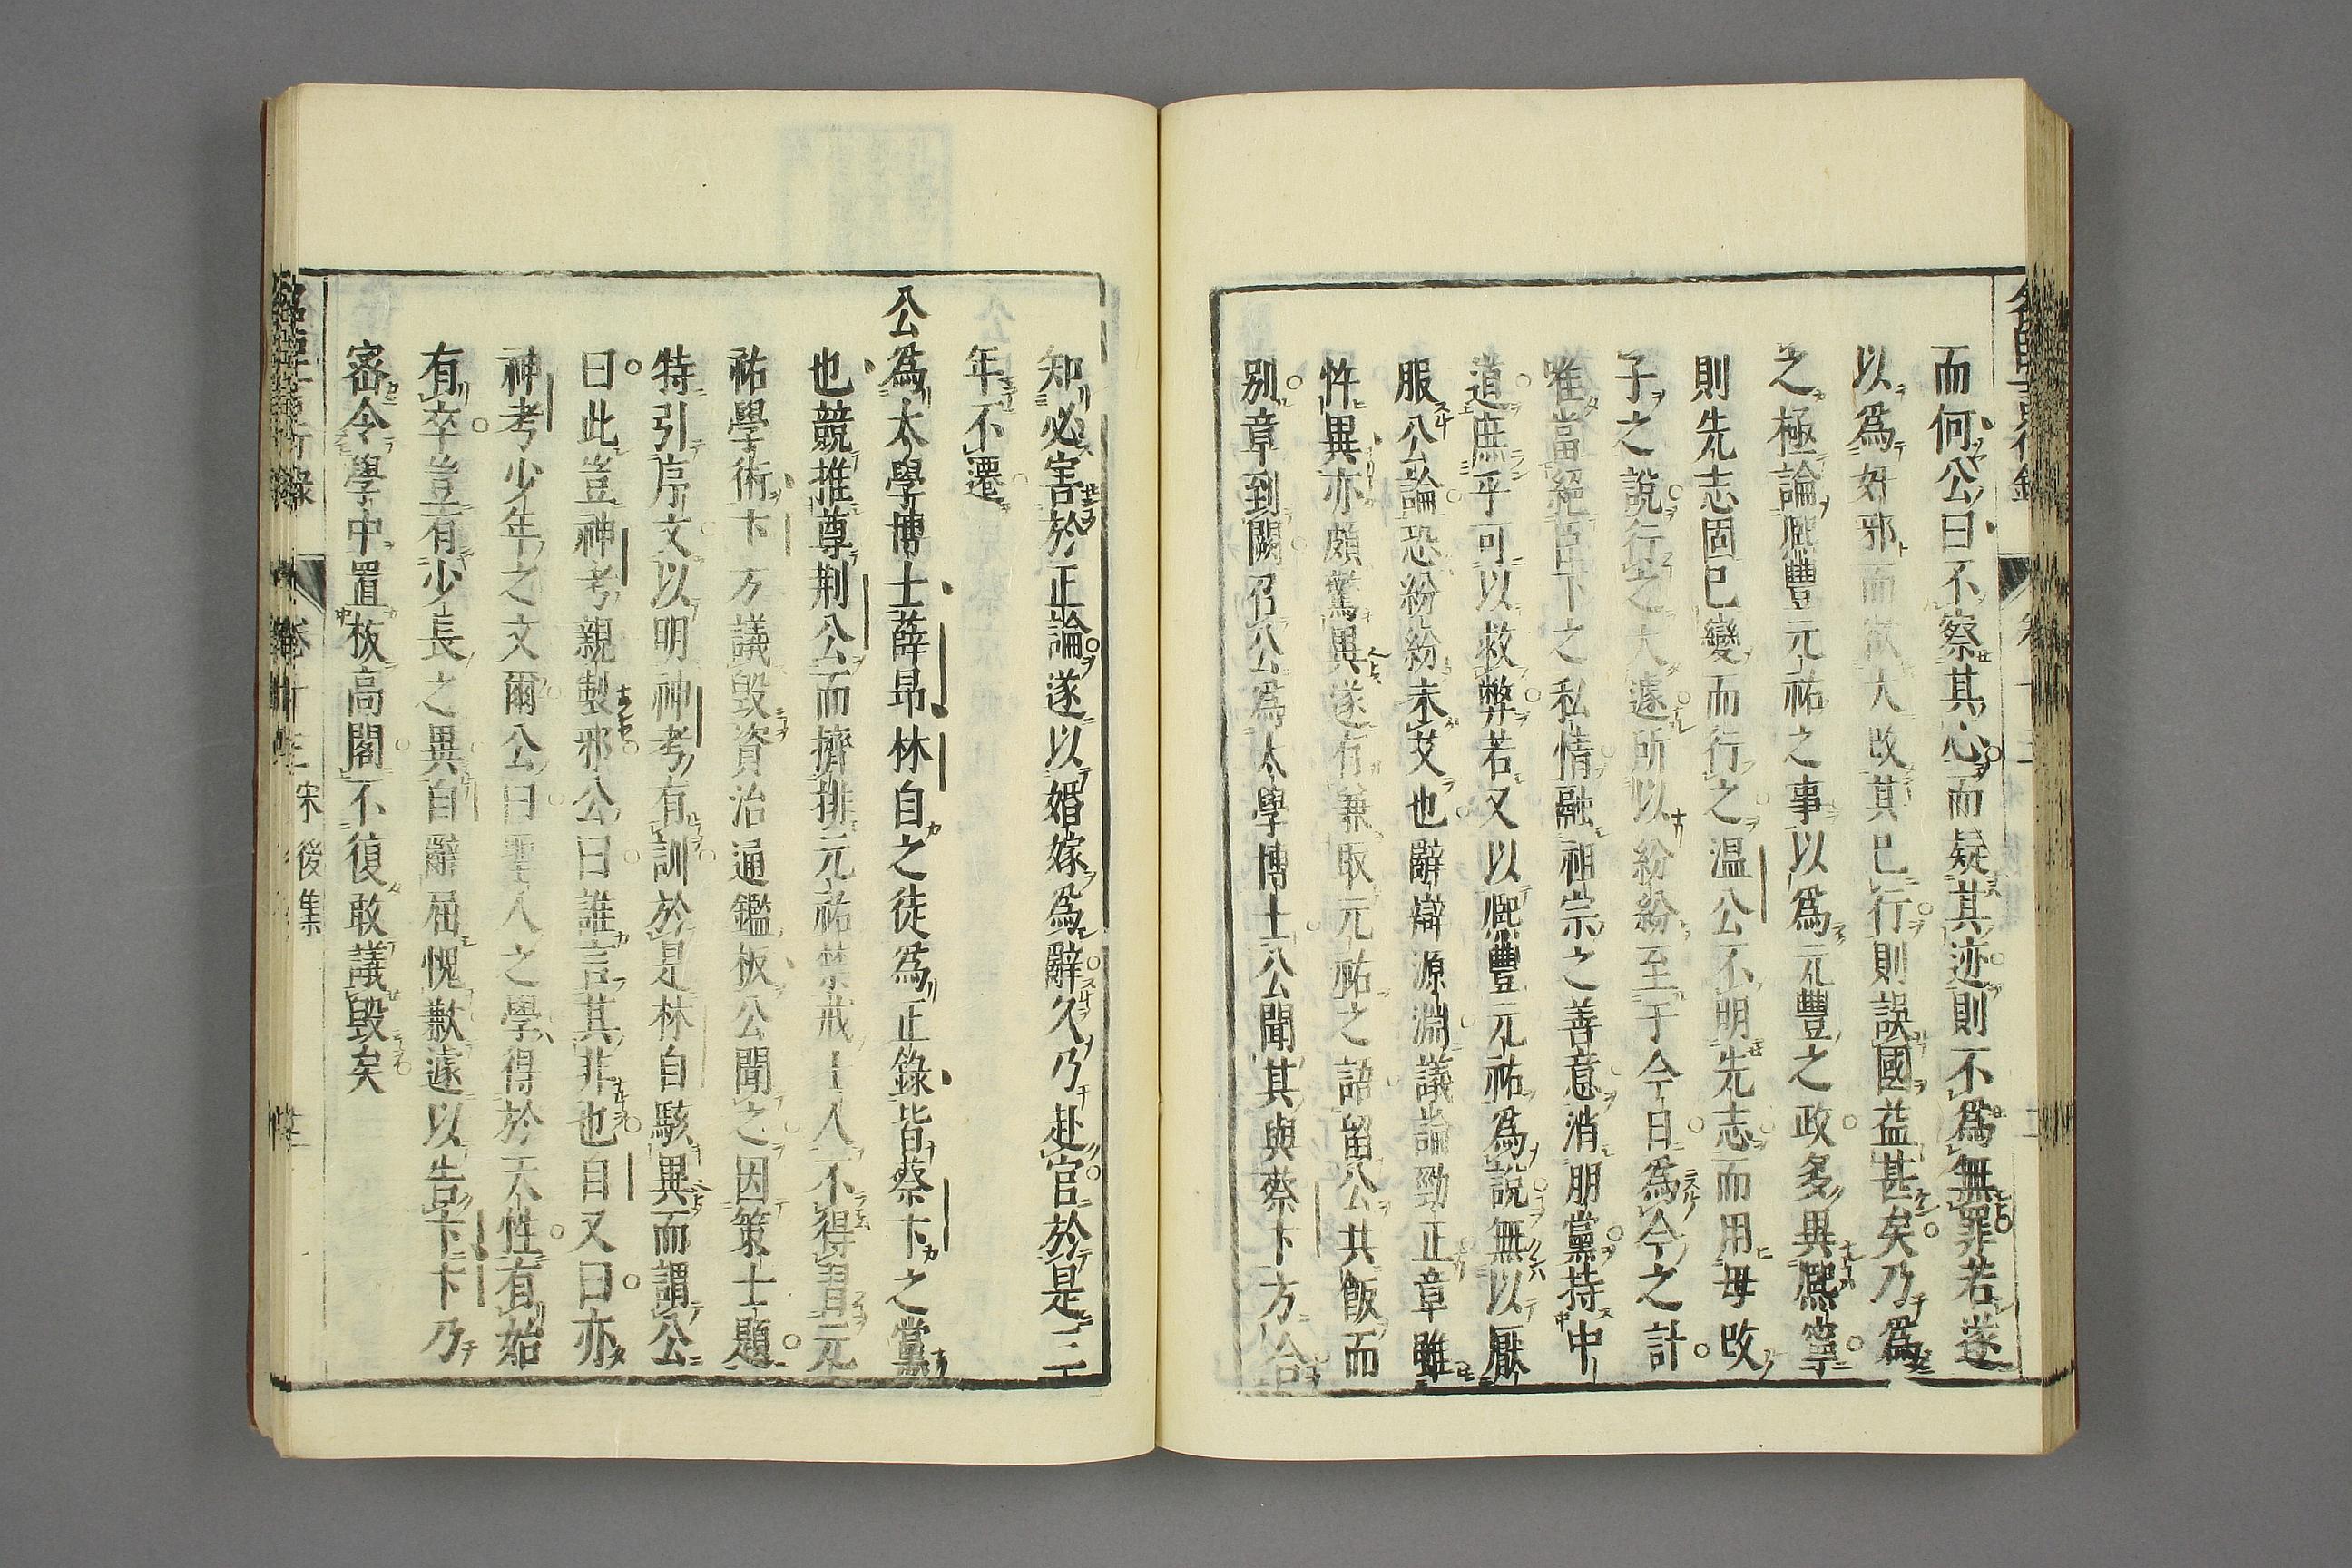 而何公曰不察其心而疑其迹則不爲無罪若遂
以爲奸邪而欲大改其已行則誤國益甚矣乃爲
之極論熈豐元祐之事以爲元豐之政多異熈寧
則先志固已變而行之温公不明先志而用母改
子之說行之太遽所以紛紛至于今日爲今之計
唯當絕臣下之私情融祖宗之善意消朋黨持中
道庶乎可以救弊若又以熈豐元祐爲說無以厭
服公論恐紛紛未艾也辭辯源淵議論勁正章雖
忤異亦頗驚異遂有兼取元祐之語留公共飯而
別章到闕召公爲太學博士公聞其與蔡卞方合
知必害於正論遂以婚嫁爲辭久乃赴官於是三
年不遷
公爲太學博士薛昻林自之徒爲正錄皆蔡卞之黨
也競推尊荆公而擠排元祐禁戒士人不得習元
祐學術卞方議毀資治通鑑板公聞之因策士題
特引序文以明神考有訓於是林自駭異而謂公
曰此豈神考親製邪公曰誰言其非也自又曰亦
神考少年之文爾公曰聖人之學得於天性有始
有卒豈有少長之異自辭屈愧歉遽以告卞卞乃
宻令學中置板高閣不復敢議毀矣
宋後集